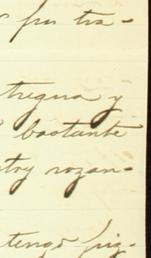 por tra-
tregua y
bastante
toy rozan-
tengo fuz-